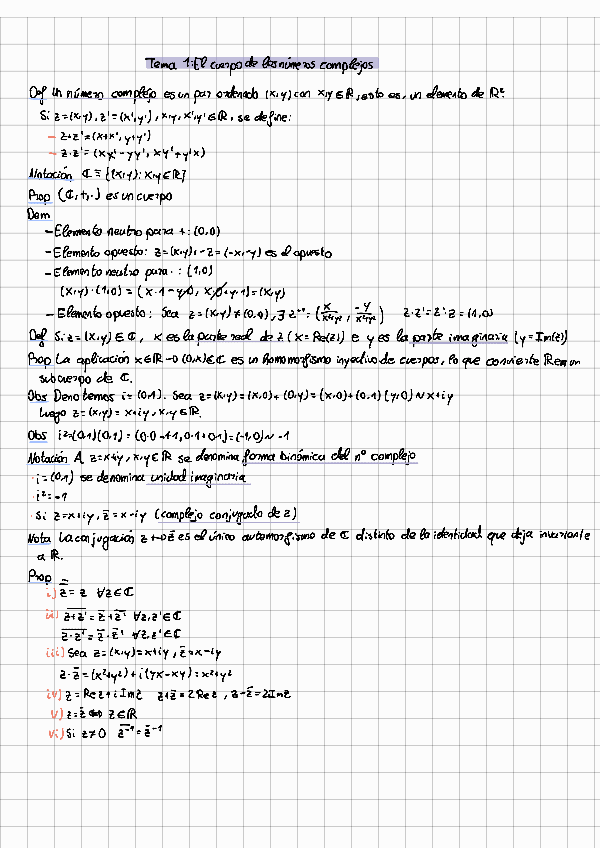 Tema 1: El cuerpo de los números complejos
Def Un número complejo es un par ordenado (x,y) con x,y ∈ ℝ, esto es, un elemento de ℝ².
Si z=(x,y), z'=(x',y'), x,y,x',y' ∈ ℝ, se define:
- z+z'=(x+x', y+y')
- z·z'=(xx'-yy', xy'+y'x)
Notación ℂ ≡ {(x,y): x,y ∈ ℝ}
Prop (ℂ,+,·) es un cuerpo
Dem
- Elemento neutro para +: (0,0)
- Elemento opuesto: z=(x,y), -z=(-x,-y) es el opuesto
- Elemento neutro para ·: (1,0)
(x,y)·(1,0) = (x·1-y·0, x·0+y·1)=(x,y)
- Elemento opuesto: Sea z=(x,y)≠(0,0), ∃ z⁻¹ = (x/x²+y², -y/x²+y²) z·z'=z'·z=(1,0)
Def Si z=(x,y) ∈ ℂ, x es la parte real de z (x=Re(z)) e y es la parte imaginaria (y=Im(z))
Prop La aplicación x∈ℝ→(0,x)∈ℂ es un homomorfismo inyectivo de cuerpos, lo que convierte ℝ en un
subcuerpo de ℂ.
Obs Denotemos i=(0,1). Sea z=(x,y)=(x,0)+(0,y)=(x,0)+(0,1)(y,0)~x+iy
Luego z=(x,y)=x+iy, x,y∈ℝ.
Obs i²=(0,1)(0,1)=(0·0-1·1, 0·1+0·1)=(-1,0)~-1
Notación A z=x+iy, x,y∈ℝ se denomina forma binómica del nº complejo
· i=(0,1) se denomina unidad imaginaria
· i²=-1
· Si z=x+iy, z̅=x-iy (complejo conjugado de z)
Nota La conjugación z↦z̅ es el único automorfismo de ℂ distinto de la identidad que deja invariante
a ℝ.
Prop
i) z̿=z ∀z∈ℂ
ii) \overline{z+z'}=z̅+z̅' ∀z,z'∈ℂ
\overline{z·z'}=z̅·z̅' ∀z,z'∈ℂ
iii) Sea z=(x,y)=x+iy, z̅=x-iy
z·z̅=(x²+y²)+i(yx-xy)=x²+y²
iv) z=Re z+i Im z z+z̅=2Re z, z-z̅=2Im z
v) z=z̅ ⇔ z∈ℝ
vi) Si z≠0 \overline{z⁻¹}=z̅⁻¹